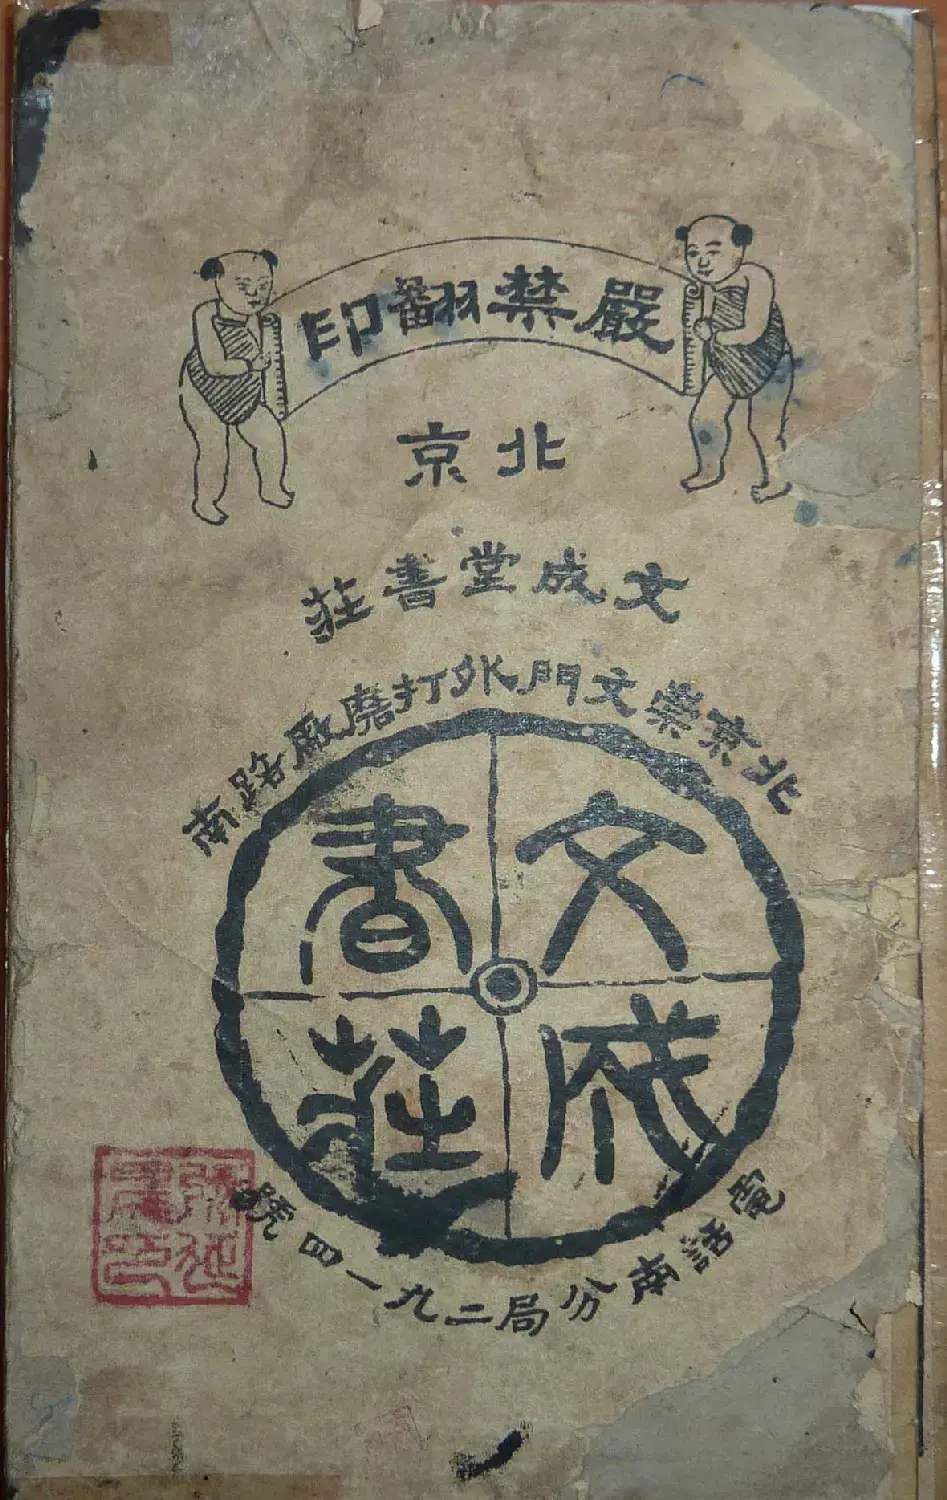 嚴禁翻印
北京
文成堂書莊
北京崇文門外打磨廠路南
文成
書莊
電話南分局二九一四號